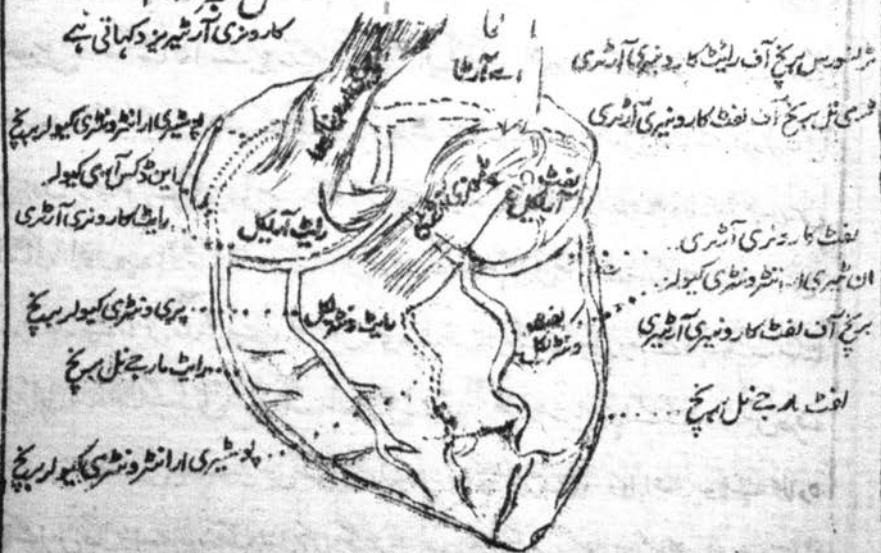 کارونری آرٹیریز دکہاتی ہے
اے آرٹا
ٹرانسورس برنچ آف رائیٹ کارونیری آرٹری
ٹرمی نل برنچ آف لفٹ کارونیری آرٹری
پوسٹیری ار انٹرونٹری کیولر برنچ
این ڈکس آری کیولر
رایٹ کارونری آرٹری
رائیٹ آریکل
لفٹ
آریکل
لفٹ کارونری آرٹری
ان ٹیری ار انٹرونٹری کیولر
برنچ آف لفٹ کارونیری آرٹیری
پری ونٹری کیولر برنچ
رایٹ ونٹریکل
لفٹ
ونٹریکل
رایٹ مارجے نل برنچ
لفٹ مارجے نل برنچ
پوسٹیری ار انٹرونٹری کیولر برنچ